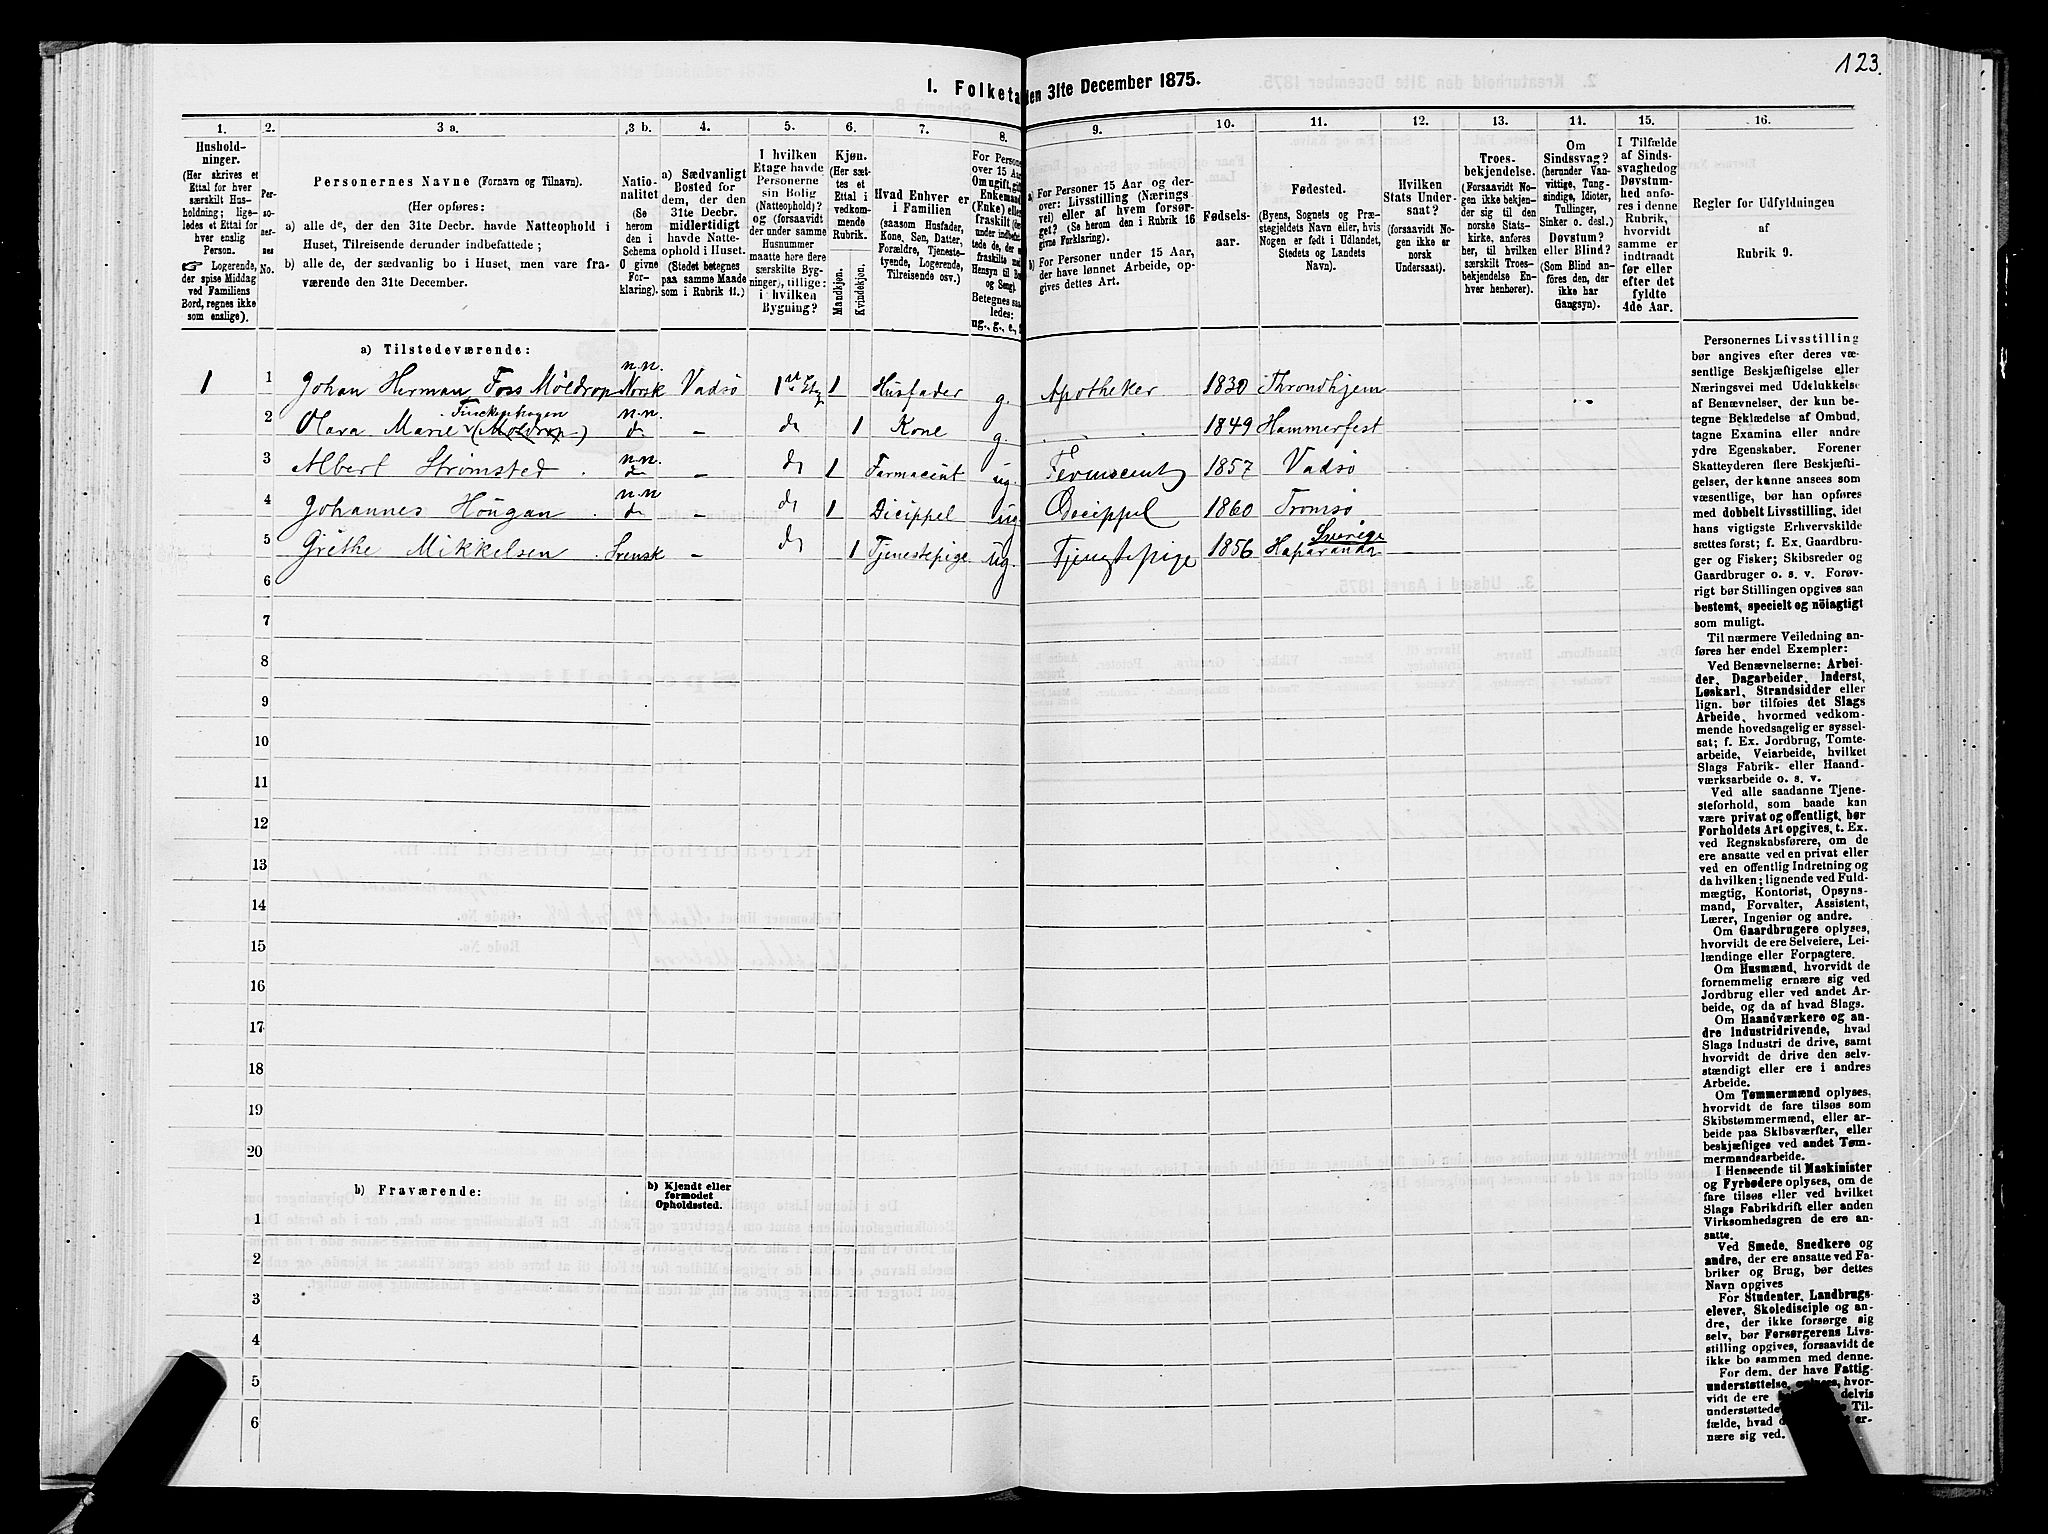 123.
I. Folketa
den 31te December 1875.
1. 2. 3 a. 3 b. 4. 5. 6. 7. 8. 9. 10. 11. 12. 13. 14. 15. 16.
Hushold-
ninger.
(Her skrives et
Ettal for hver
særskilt Hus-
holdning; lige-
ledes et Ettal for
hver enslig
Person.
☞ Logerende,
der spise Middag
ved Familiens
Bord, regnes ikke
som enslige).
Per-
so-
ner-
nes
No.
Personernes Navne (Fornavn og Tilnavn).
(Her opføres:
a) alle de, der den 31te Decbr. havde Natteophold i
Huset, Tilreisende derunder indbefattede;
b) alle de, der sædvanlig bo i Huset, men vare fra-
værende den 31te December.
Natio-
nalitet
(Se
herom
den i
Schema
O givne
For-
klaring).
a) Sædvanligt
Bosted for
dem, der den
31te Decbr.
midlertidigt
havde Natte-
ophold i Huset.
(Stedet betegnes
paa samme Maade
som i Rubrik 11.)
I hvilken
Etage havde
Personerne
sin Bolig
(Natteophold)?
og (forsaavidt
der under samme
Husnummer
maatte høre flere
særskilte Byg-
ninger), tillige:
i hvilken
Bygning?
Kjøn.
(Her sæt-
tes et
Ettal i
vedkom-
mende
Rubrik.
Mandkjøn.
Kvindekjøn.
Hvad Enhver er
i Familien
(saasom Husfader,
Kone, Søn, Datter,
Forældre, Tjeneste-
tyende, Logerende,
Tilreisende osv.)
For Persone
over 15 Aar
Om ugift, gift
Enkemand
(Enke) elle
fraskilt
Hensyn til Bo
og Seng).
Betegnes saa
ledes:
ug., g., e., f
a) For Personer 15 Aar og der-
over: Livsstilling (Nærings
vei) eller af hvem forsør-
get? (Se herom den i Rubrik 16
givne Forklaring).
b) For Personer under 15 Aar,
der have lønnet Arbeide, op-
gives dettes Art.
Fødsels-
aar.
Fødested.
(Byens, Sognets og Præ-
stegjeldets Navn eller, hvis
Nogen er født i Udlandet,
Stedets og Landets
Navn).
Hvilken
Stats Under-
saat?
(forsaavidt No-
gen ikke er
norsk
Undersaat).
Troes-
bekjendelse.
(Forsaavidt No-
gen ikke bekjen-
der sig til den
norske Stats-
kirke, anføres
her, til hvilken
særskilt Troes-
bekjendelse En-
hver henhører).
Om
Sindssvag?
(herunder Van-
vittige, Tung-
sindige, Idioter,
Tullinger,
Sinker o. desl.)
Døvstum?
eller Blind?
(Som Blind an-
føres den, der
ikke har
Gangsyn).
I Tilfælde
af Sinds-
svaghed og
Døvstum-
hed anfø-
res i denne
Rubrik,
hvorvidt
samme er
indtraadt
før eller
efter det
fyldte
4de Aar.
Regler for Udfyldningen
af
Rubrik 9.
a) Tilstedeværende:
1 1 Johan Herman Foss Möldrop n.n. Norsk Vadsö 1st Etg 1 Husfader g. Apotheker 1830 Throndhjem
2 Olava Marie Finckenhagen (Moldrop) n.n. do – do 1 Kone g. 1849 Hammerfest
3 Albert Strömsted n.n. do – do 1 Farmaceut ug. 1857 Vadsö
4 Johannes Hougan n.n do – do 1 Dicippel ug Dicippel 1860 Tromsö
5 Grethe Mikkelsen Svensk – do 1 Tjenestepige ug. Tjenestepige 1856 Haparanda Sverige
6
7
8
9
10
11
12
13
14
15
16
17
18
19
20
b) Fraværende:
b) Kjendt eller
formodet
Opholdssted.
1
2
3
4
5
6
Personernes Livsstilling
bør angives efter deres væ-
sentlige Beskjæftigelse eller
Næringsvei med Udelukkelse
af Benævnelser, der kun be-
tegne Beklædelse af Ombud,
tagne Examina eller andre
ydre Egenskaber. Forener
Skatteyderen flere Beskjæfti-
gelser, der kanne ansees som
væsentlige, bør han opføres
med dobbelt Livsstilling, idet
hans vigtigste Erhvervskilde
sættes først; f. Ex. Gaardbru-
ger og Fisker; Skibsreder og
Gaardbruger o. s. v. Forøv-
rigt bør Stillingen opgives saa
bestemt, specielt og nöiagtigt
som muligt.
Til nærmere Veiledning an-
føres her endel Exempler:
Ved Benævnelserne: Arbei-
der, Dagarbeider, Inderst,
Løskarl, Strandsidder eller
lign. bør tilføies det Slags
Arbeide, hvormed vedkom-
mende hovedsagelig er syssel-
sat; f. Ex. Jordbrug, Tomte-
arbeide, Veiarbeide, hvilket
Slags Fabrik- eller Haand-
værksarbeide o. s. v.
Ved alle saadanne Tjene-
steforhold, som baade kan
være privat og offentligt, bør
Forholdets Art opgives, t. Ex.
ved Regnskabsførere, om de
ere ansatte ved en privat eller
ved en offentlig Indretning og
da hvilken; lignende ved Fuld-
mægtig, Kontorist, Opsyns-
mand, Forvalter, Assistent,
Lærer, Ingeniør og andre.
Om Gaardbrugere oplyses,
hvorvidt de ere Selveiere, Lei-
lændinge eller Forpagtere.
Om Husmænd, hvorvidt de
fornemmelig ernære sig ved
Jordbrug eller ved andet Ar-
beide, og da af hvad Slags.
Om Haandværkere og an-
dre Industridrivende, hvad
Slags Industri de drive, samt
hvorvidt de drive den selv-
stændigt eller ere i andres
Arbeide.
Om Tømmermænd oplyses,
hvorvidt de fare tilsøs som
Skibstømmermænd, eller ar-
beide paa Skibsværfter, eller
beskjæftiges ved andet Tøm-
mermandsarbeide.
I Henseende til Maskinister
og Fyrbødere oplyses, om de
fare tilsøs eller ved hvilket
Slags Fabrikdrift eller anden
Virksomhedsgren de ere an-
satte.
Ved Smede, Snedkere og
andre, der ere ansatte ved Fa-
briker og Brug, bør dettes
Navn opgives
For Studenter, Landbrugs-
elever, Skoledisciple og an-
dre, der ikke forsørge sig
selv, bør Forsørgerens Livs-
stilling opgives, forsaavidt de
ikke bo sammen med denne.
For dem, der have Fattig-
understøttelse, oplyses, hvor-
vidt de ere delvis
understøttede Til-
fælde, hvad er-
nære sig ved.